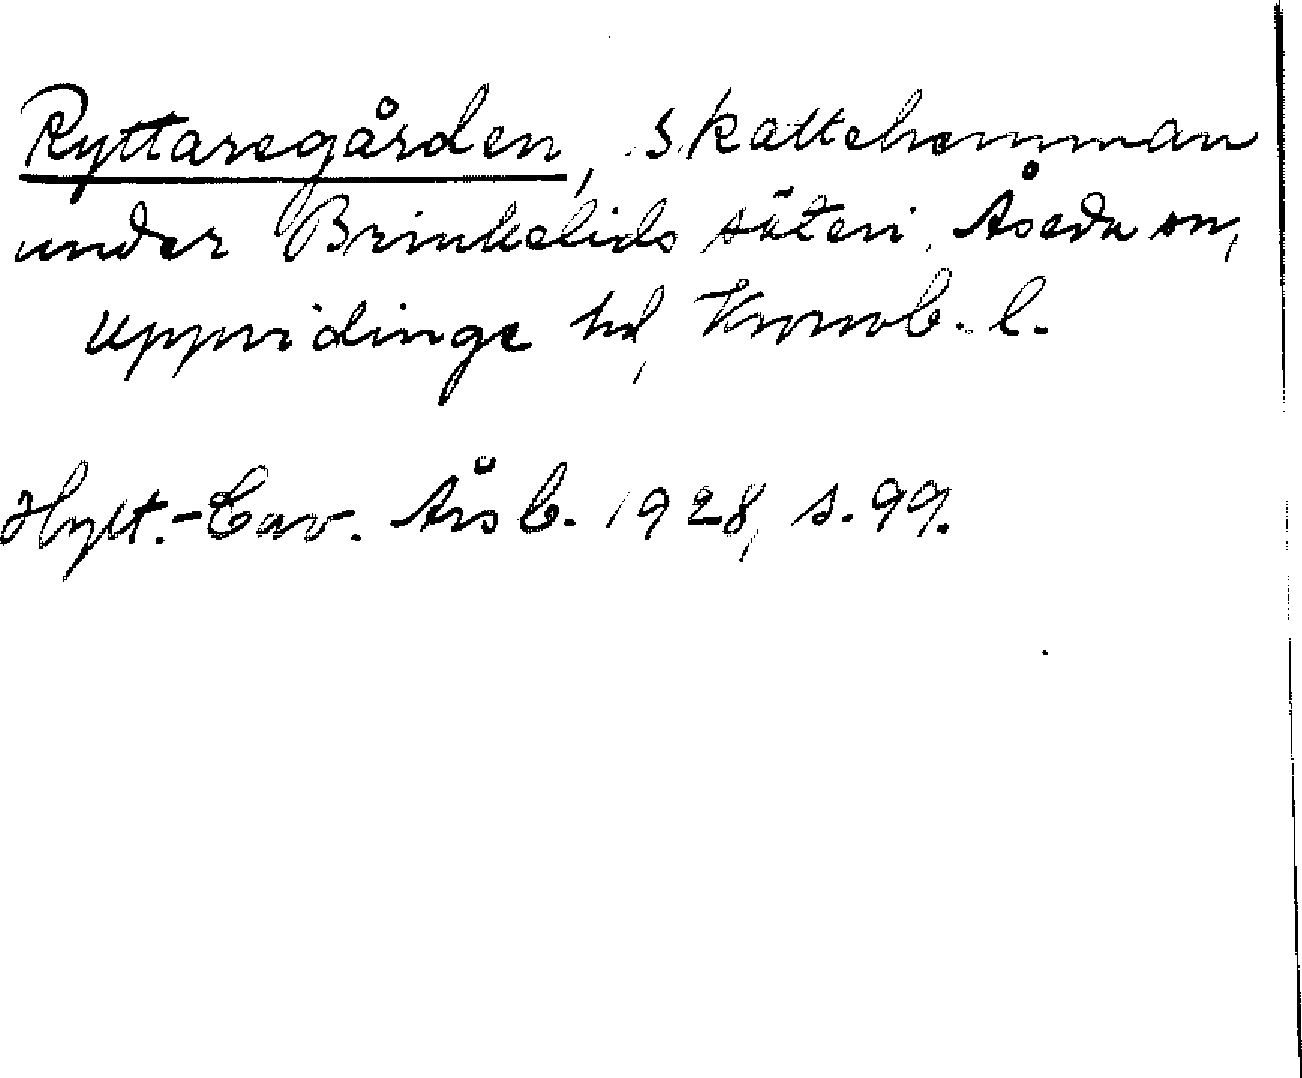 Ryttaregården, skattehemman
under Brinkelids säteri, Åseda sn,
Uppvidinge hd, Kronob. l.
Hylt.-Cav. Årsb. 1928, s. 99.